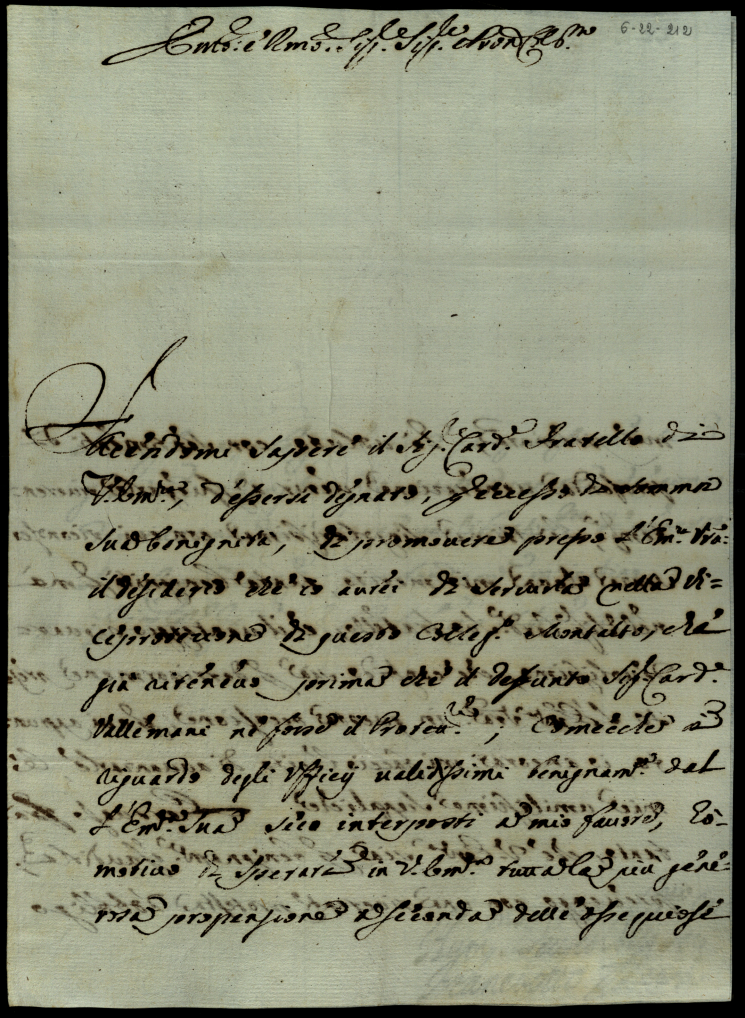 6-22-212
Em̃o: e Rm̃o. Sig.re Sig.re Pron Col.mo
Facendomi sapere il Sig.r Card.e Fratello di
V. Em.za, d'essersi degnato, p eccesso di somma
sua benignità, di promovere presso l'Em.za Vrã.
il desiderio che io avrei di servirla nella Vi=
ceprotezione di questo Colleg.o Montalto, che
già ottenevo prima che il defunto Sig.r Card.e
Vallemani ne fosse il Protet.re; Comecché a
riguardo degli Officij validissimi benignam.te dal
L'Em.za Sua seco interposti a mio favore, hò
motivo di sperare in V. Em.za tutta la più gene=
rosa propensione a seconda delle ossequiose